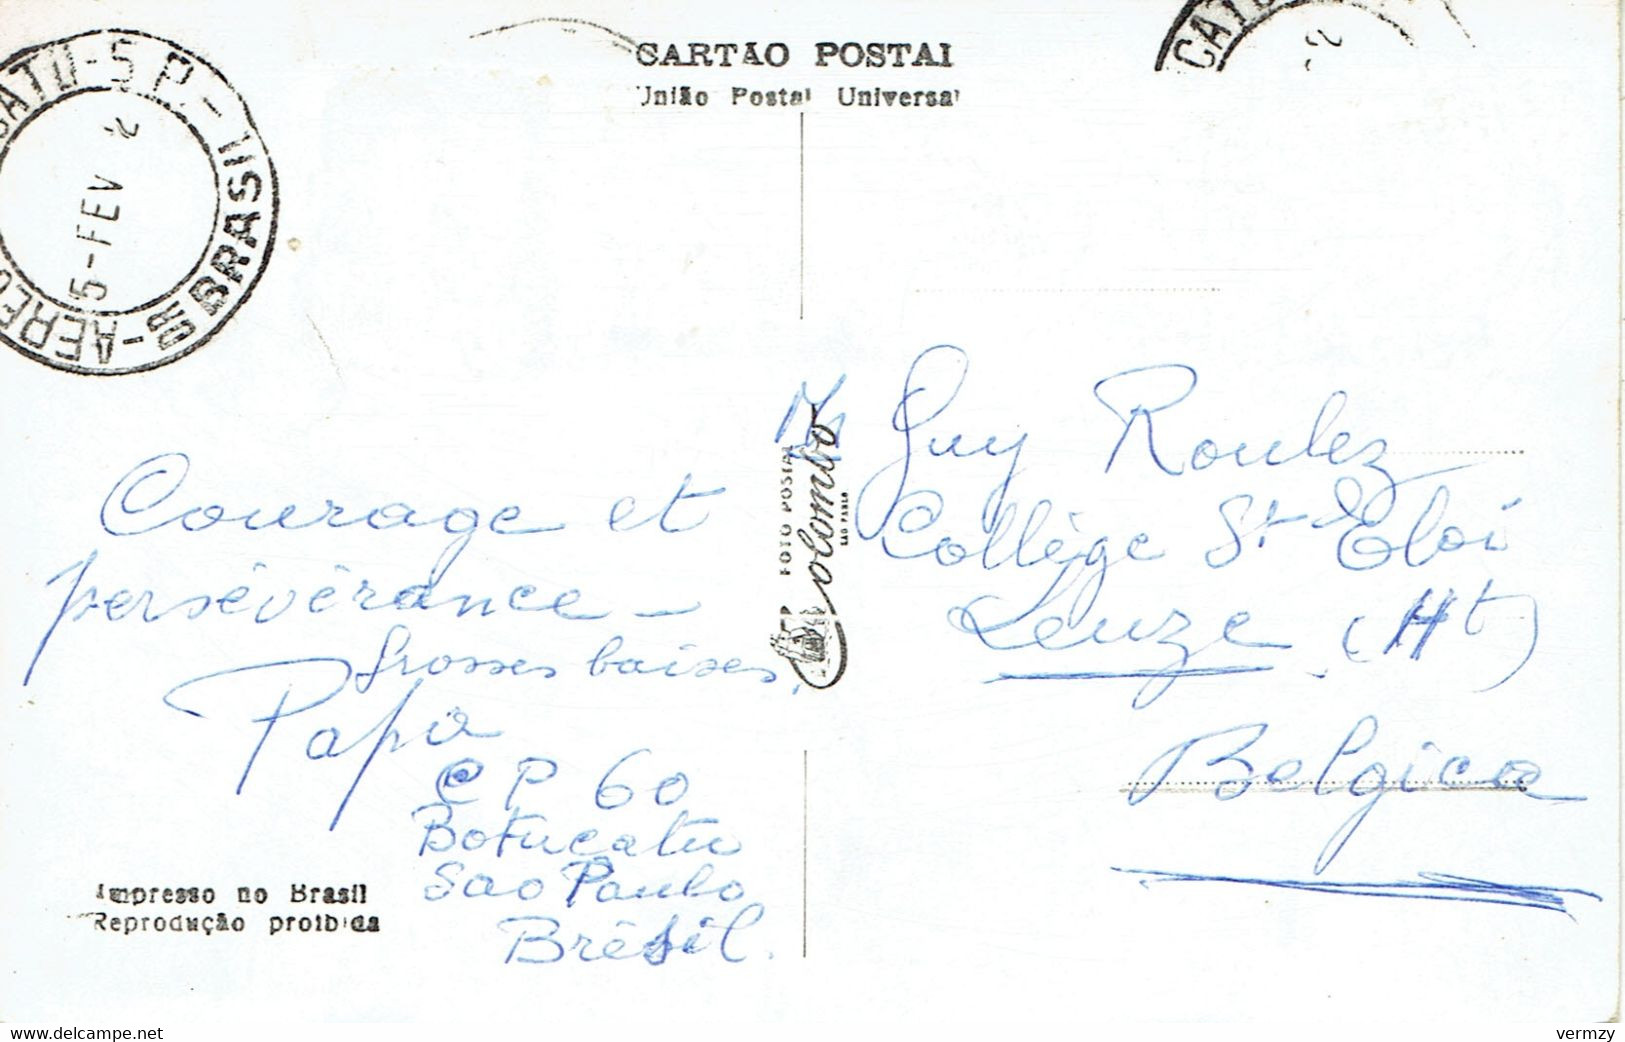 CARTÃO POSTAL
União Postal Universal
CATU-SP.-BRASIL
5-FEV
AEREO
CATU
Courage et
persévérance -
Grosses baises,
Papa
CP 60
Botucatu
Sao Paulo
Brésil.
Impresso no Brasil
Reprodução proibida
FOTO POSTAL
Colombo
SÃO PAULO
Guy Roulez
Collège St Eloi
Leuze (Ht)
Belgica
delcampe.net
vermzy